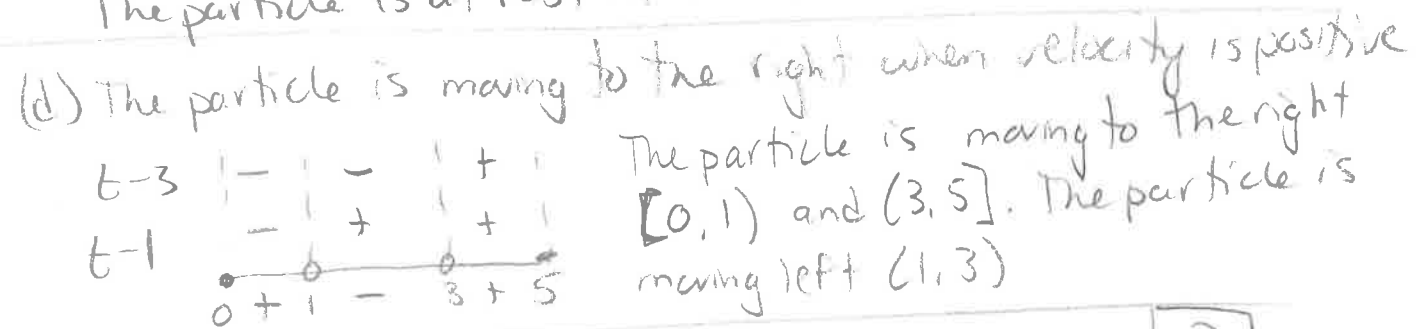 The particle is at rest
(d) The particle is moving to the right when velocity is positive
t-3 - - + The particle is moving to the right
t-1 - + + [0,1) and (3,5]. The particle is
0 + 1 - 3 + 5 moving left (1,3)